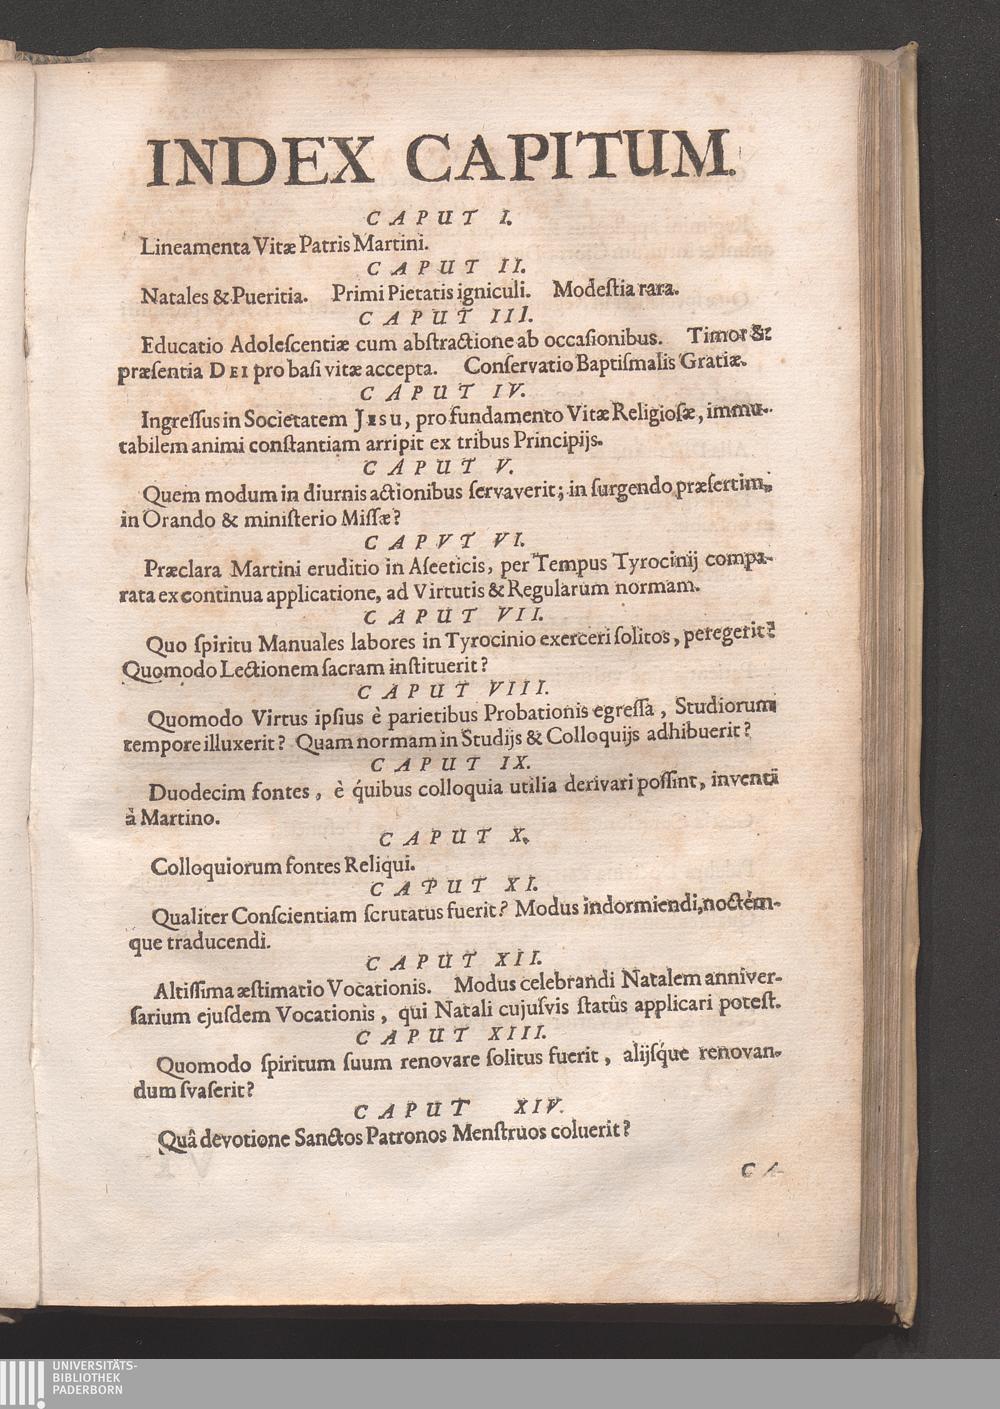 INDEX CAPITUM.
CAPUT I.
Lineamenta Vitæ Patris Martini.
CAPUT II.
Natales & Pueritia. Primi Pietatis igniculi. Modeſtia rara.
CAPUT III.
Educatio Adoleſcentiæ cum abſtractione ab occaſionibus. Timor &
præſentia DEI pro baſi vitæ accepta. Conſervatio Baptiſmalis Gratiæ.
CAPUT IV.
Ingreſſus in Societatem JESU, pro fundamento Vitæ Religioſæ, immu-
tabilem animi conſtantiam arripit ex tribus Principijs.
CAPUT V.
Quem modum in diurnis actionibus ſervaverit; in ſurgendo præſertim,
in Orando & miniſterio Miſſæ?
CAPVT VI.
Præclara Martini eruditio in Aſeeticis, per Tempus Tyrocinij compa-
rata ex continua applicatione, ad Virtutis & Regularum normam.
CAPUT VII.
Quo ſpiritu Manuales labores in Tyrocinio exerceri ſolitos, peregerit?
Quomodo Lectionem ſacram inſtituerit?
CAPUT VIII.
Quomodo Virtus ipſius è parietibus Probationis egreſſa, Studiorum
tempore illuxerit? Quam normam in Studijs & Colloquijs adhibuerit?
CAPUT IX.
Duodecim fontes, è q́uibus colloquia utilia derivari poſſint, inventi
à Martino.
CAPUT X.
Colloquiorum fontes Reliqui.
CAPUT XI.
Qualiter Conſcientiam ſcrutatus fuerit? Modus indormiendi, noctém-
que traducendi.
CAPUT XII.
Altiſſima æſtimatio Vocationis. Modus celebrandi Natalem anniver-
ſarium ejuſdem Vocationis, qui Natali cujuſvis ſtatûs applicari poteſt.
CAPUT XIII.
Quomodo ſpiritum ſuum renovare ſolitus fuerit, alijſq́ue renovan-
dum ſvaſerit?
CAPUT XIV.
Quâ devotione Sanctos Patronos Menſtruos coluerit?
CA-
UNIVERSITÄTS-
BIBLIOTHEK
PADERBORN